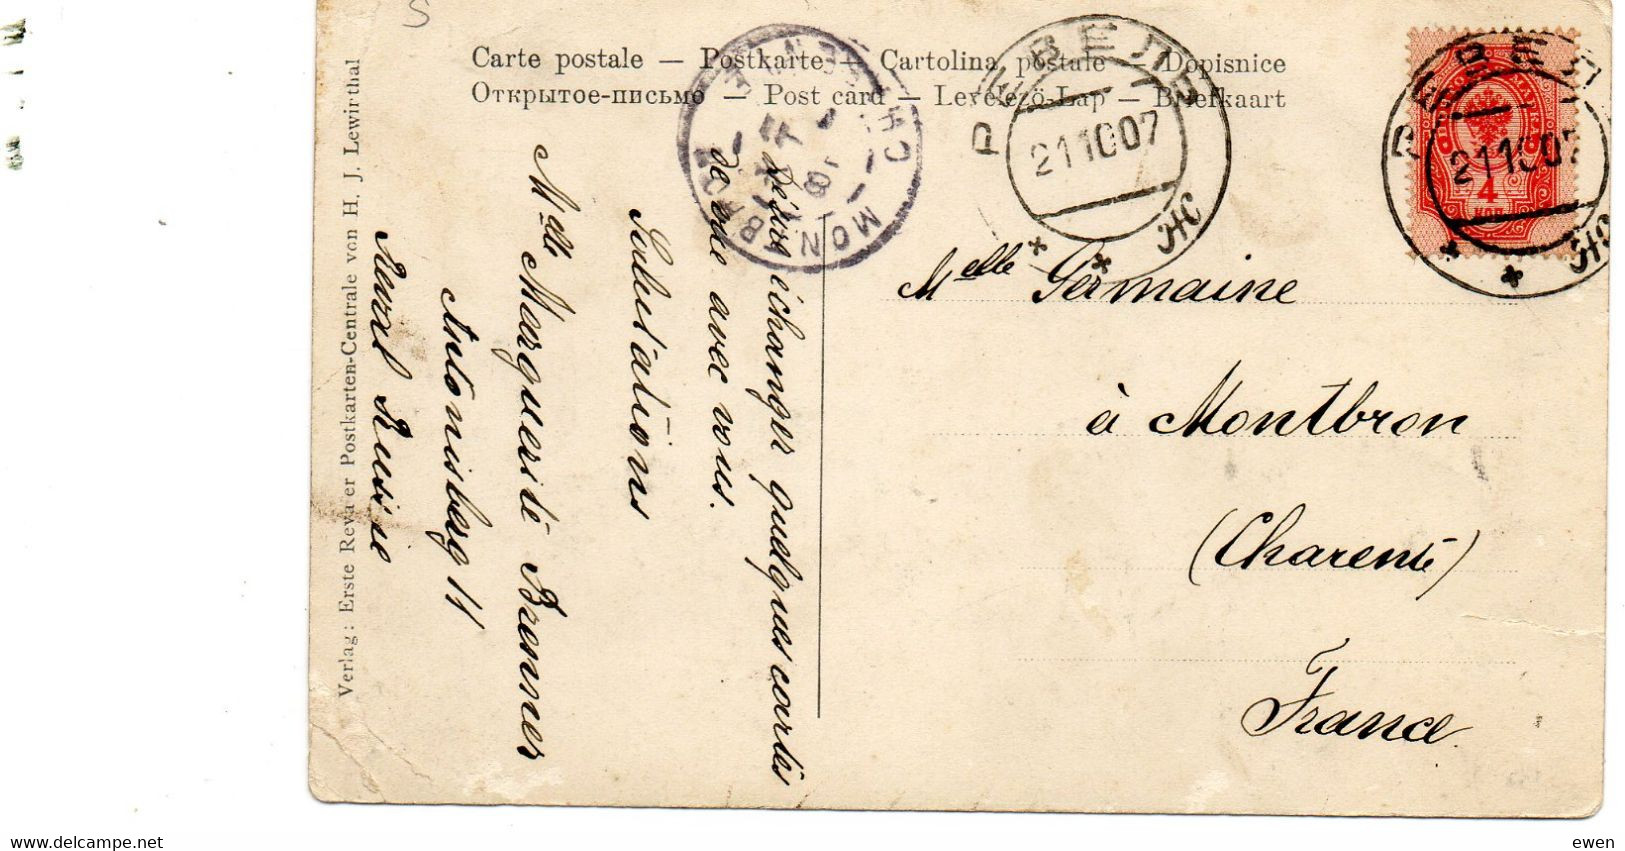 S
Carte postale — Postkarte — Cartolina postale — Dopisnice
Открытое-письмо — Post card — Levelező-Lap — Briefkaart
Verlag: Erste Revaler Postkarten-Centrale von H. J. Lewirthal
désire échanger quelques cartes
de vue avec vous.
Salutations
Mdlle Marguerite Bremner
Antonisberg 11
Reval Russie
MONTBRON
CHARENTE
РЕВЕЛЬ
211007
Ж
РЕВЕЛЬ
211007
Ж
4
КОП
Melle Germaine
à Montbron
(Charente)
France
ewen